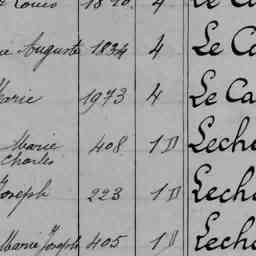 Louis 1870. 4 Le Ca
Auguste 1834 4 Le Ca
Marie 1973 4 Le Ca
Marie Charles 408 1D Lecho
Joseph 223 1D Lecho
Marie Joseph 405 1D Lecho